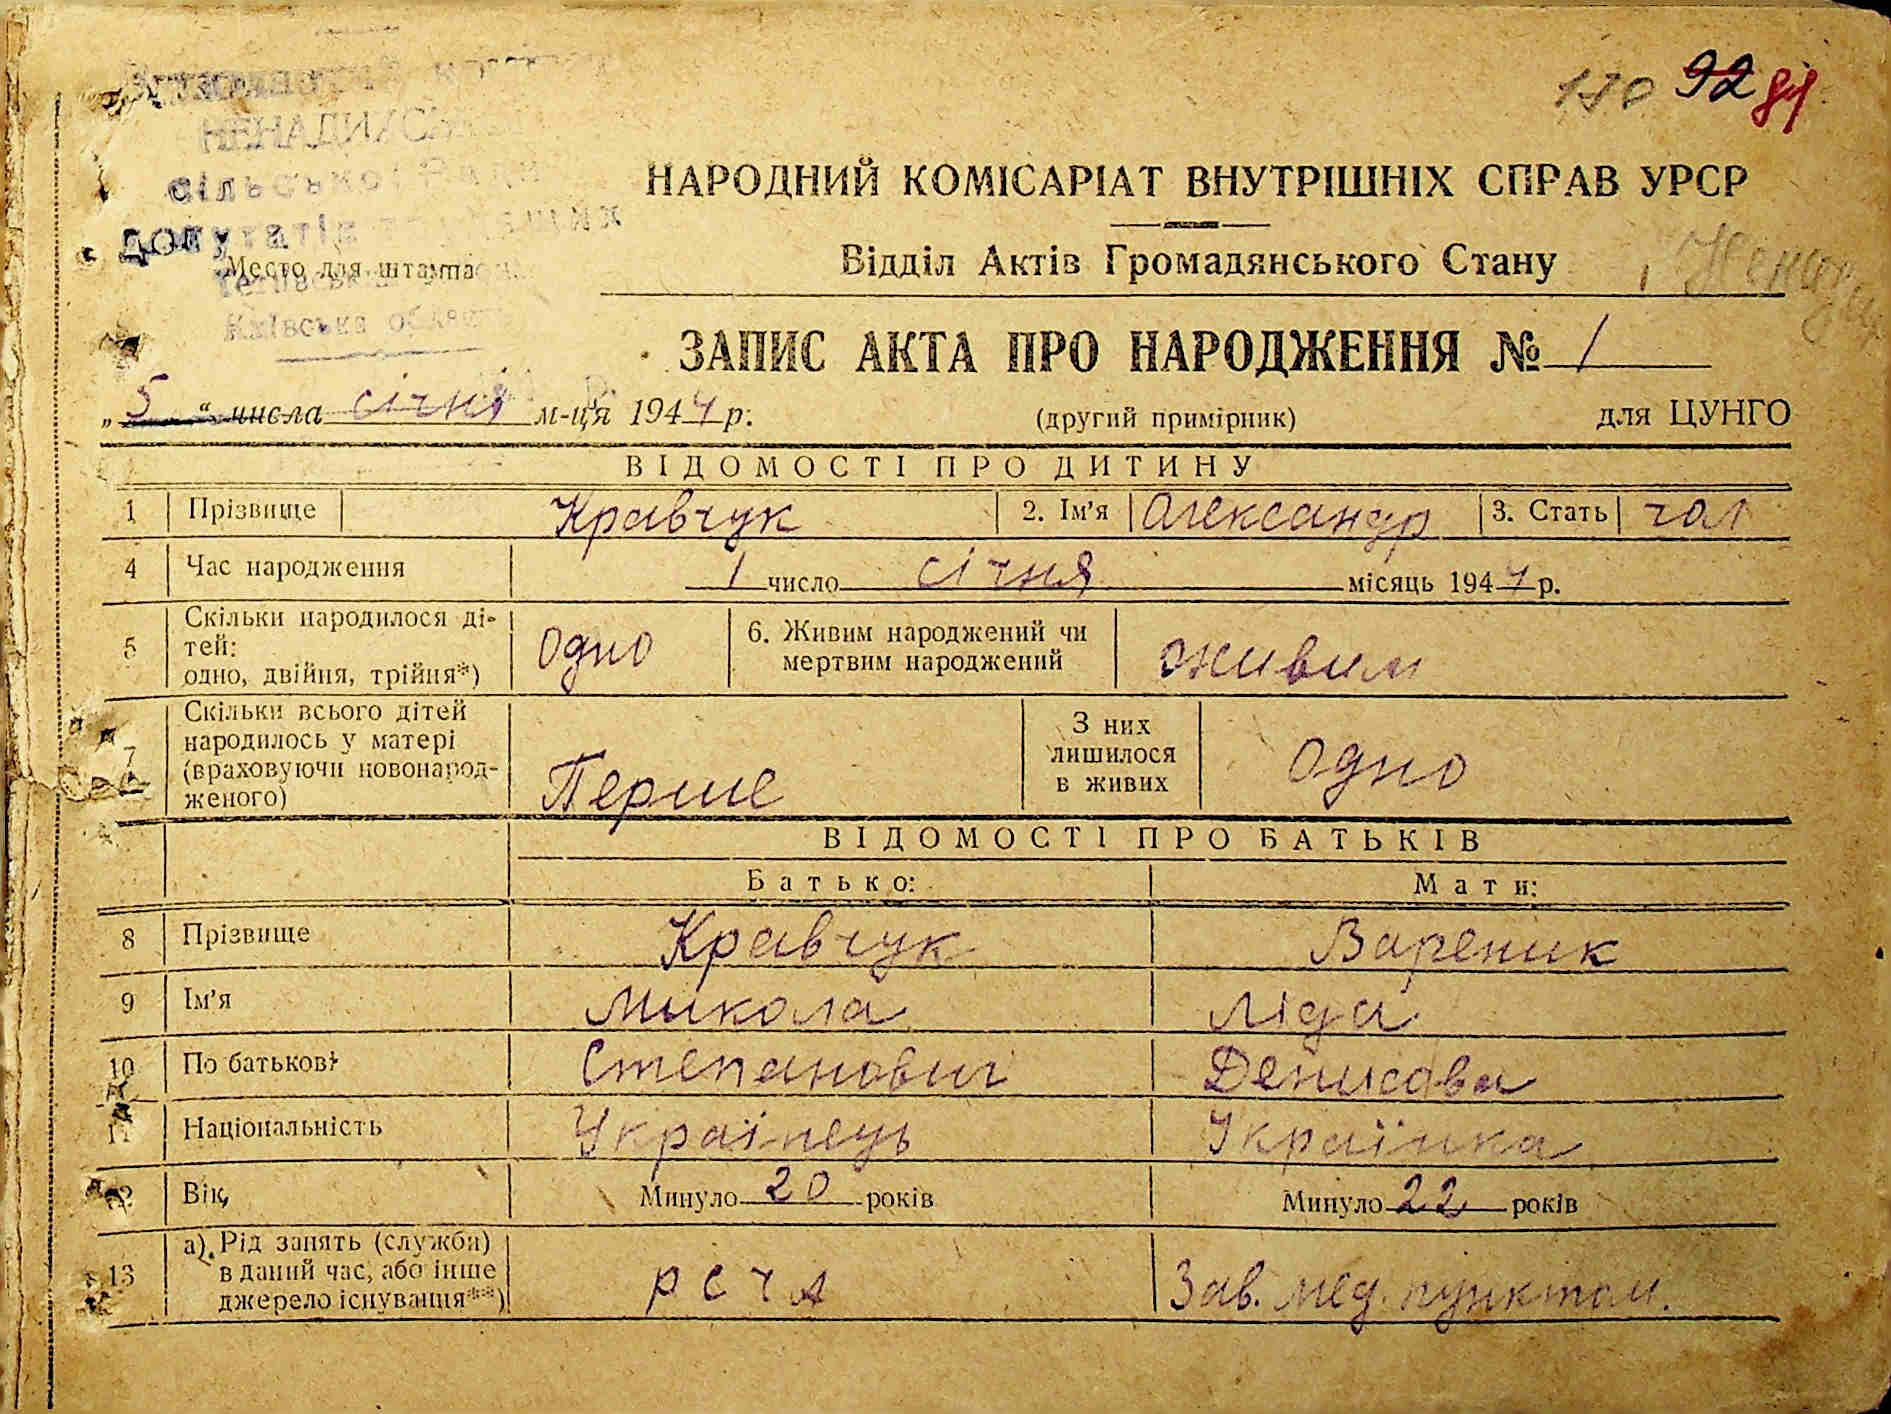 110 92 81
НАРОДНИЙ КОМІСАРІАТ ВНУТРІШНІХ СПРАВ УРСР
Відділ Актів Громадянського Стану
сільської
Депутатів
Место для штампа
Київська область
ЗАПИС АКТА ПРО НАРОДЖЕННЯ № 1
„5“ числа січня м-ця 1944 р. (другий примірник) для ЦУНГО
ВІДОМОСТІ ПРО ДИТИНУ
1 Прізвище Кравчук 2. Ім'я Олександр 3. Стать чол
4 Час народження 1 число січня місяць 1944 р.
5 Скільки народилося ді-
тей:
одно, двійня, трійня*) Одно 6. Живим народжений чи
мертвим народжений живим
7 Скільки всього дітей
народилось у матері
(враховуючи новонарод-
женого) Перше З них
лишилося
в живих Одно
ВІДОМОСТІ ПРО БАТЬКІВ
Батько: Мати:
8 Прізвище Кравчук Вареник
9 Ім'я Микола Ліда
10 По батькові Степанович Денисовн
11 Національність Українець Українка
12 Вік Минуло 20 років Минуло 22 років
13 а) Рід занять (служби)
в даний час, або інше
джерело існування**) РСЧА Зав. мед. пунктом.